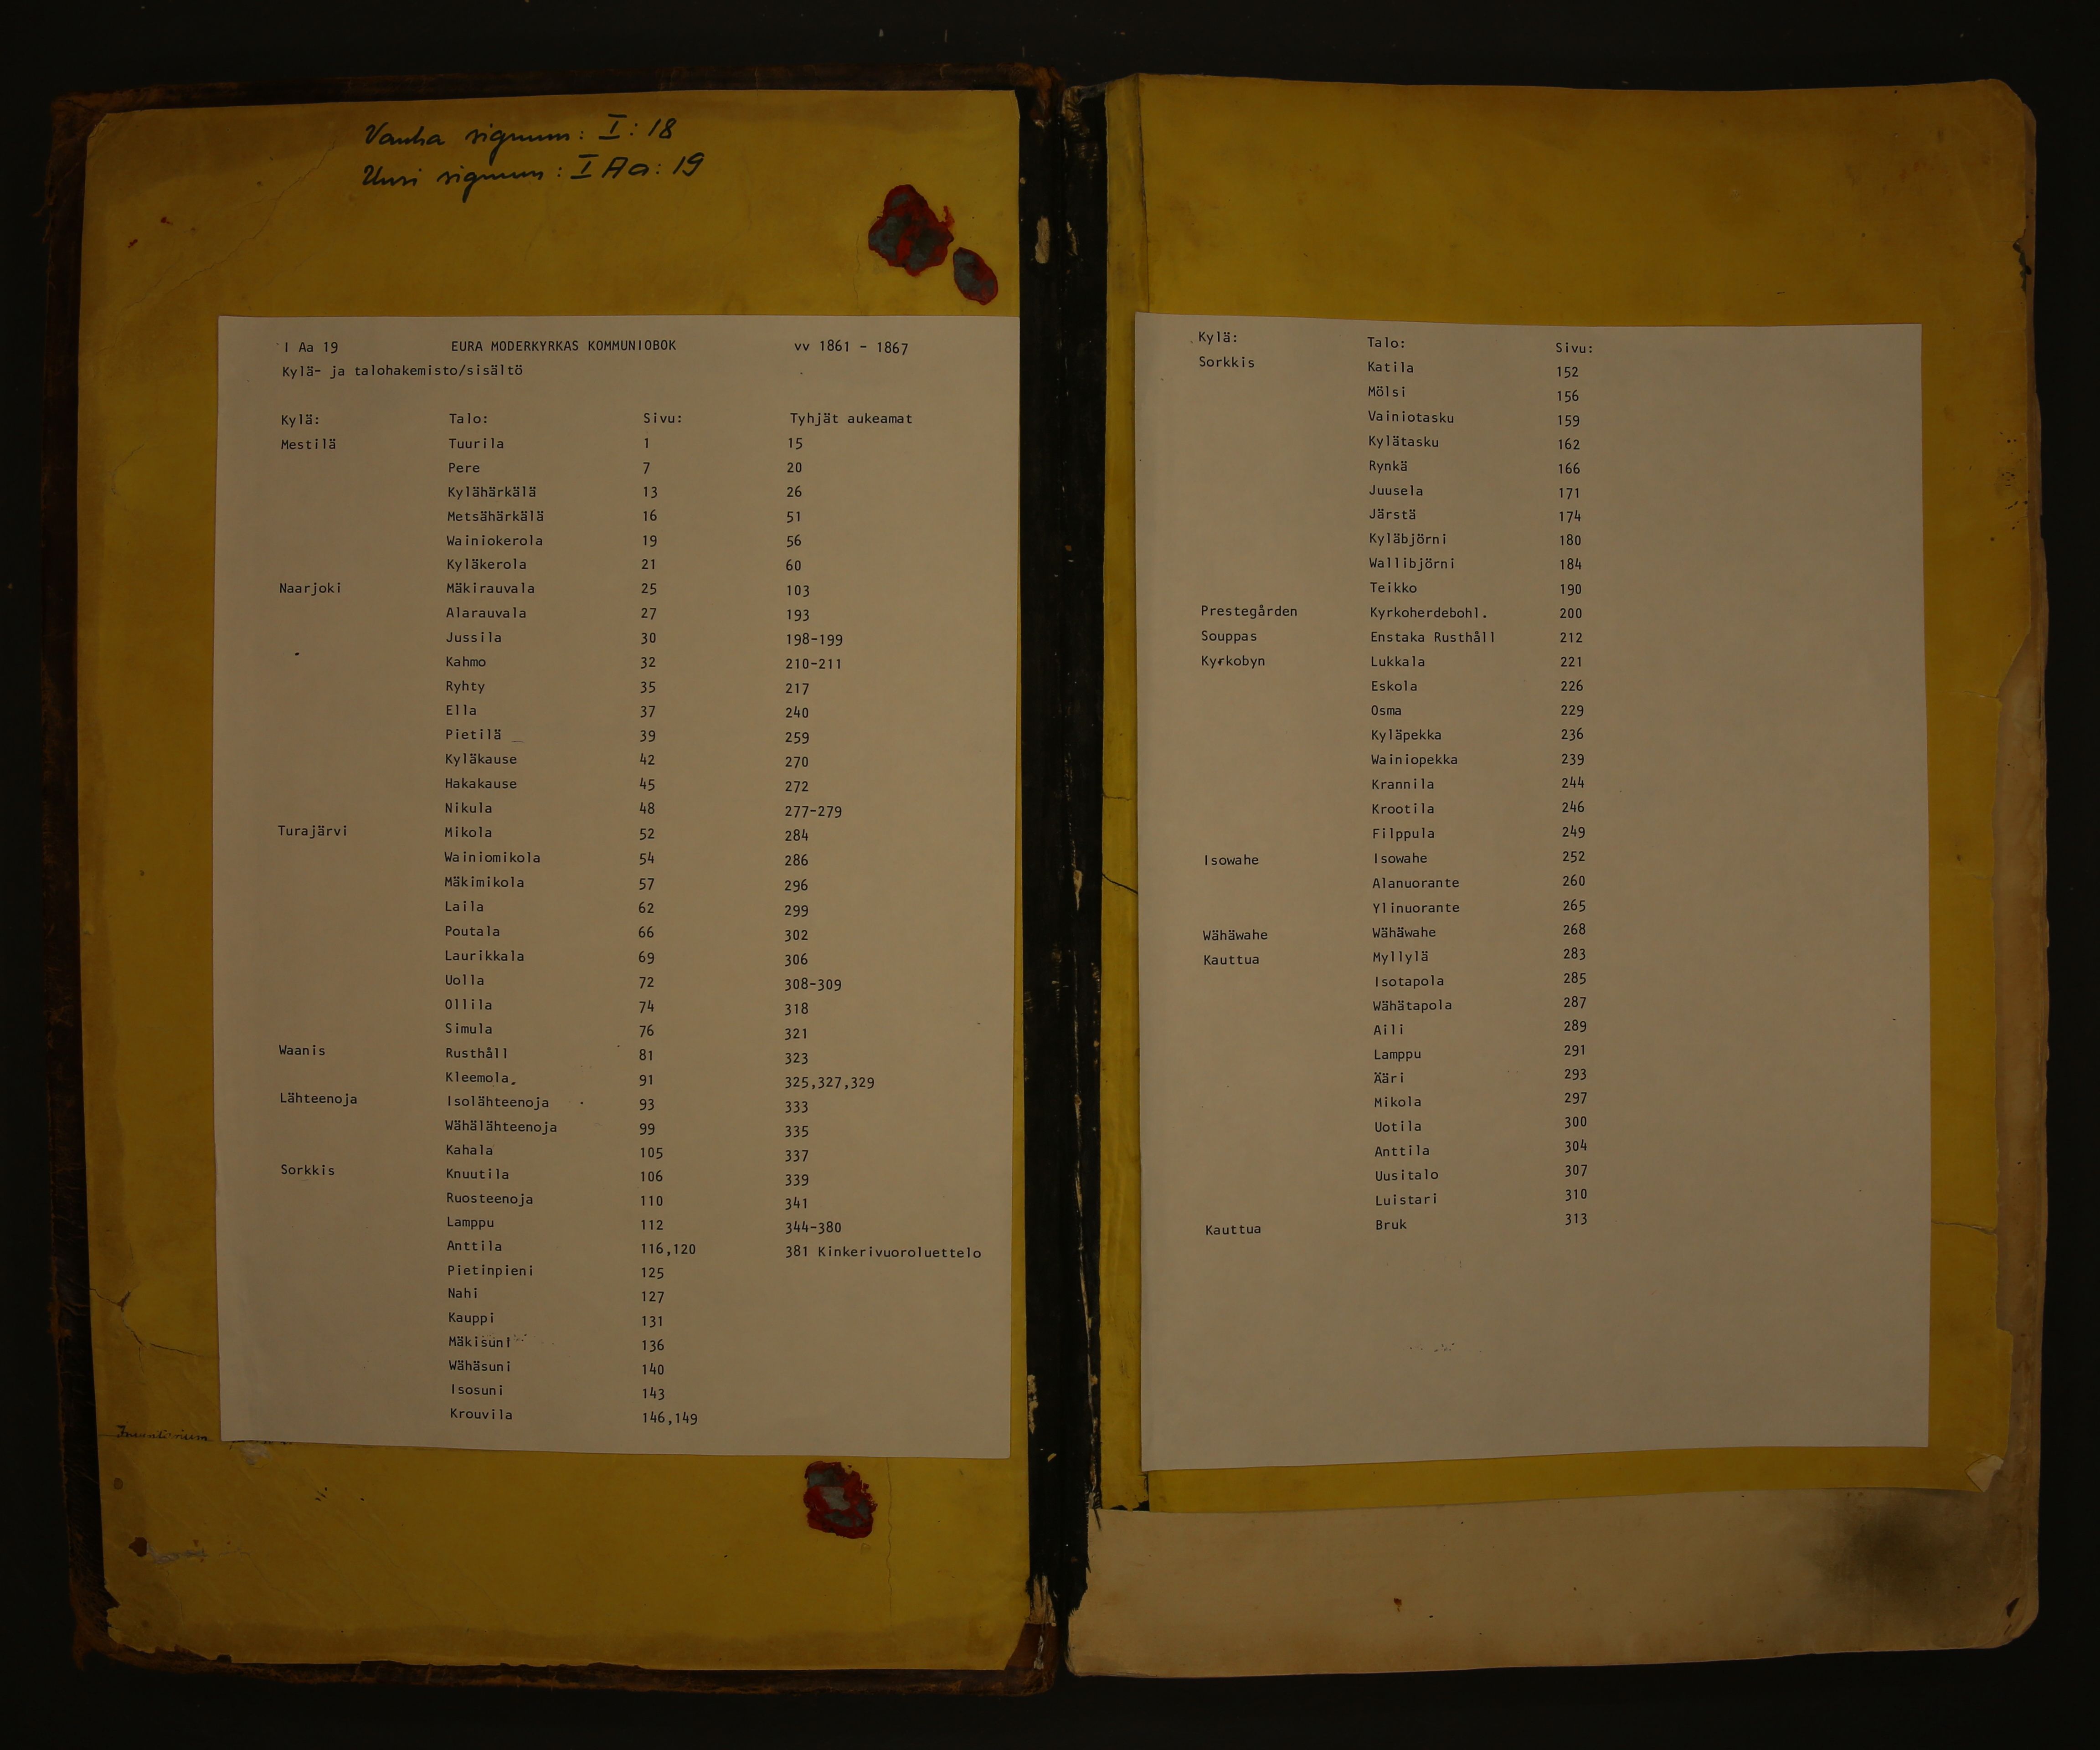 Vanha signum: I: 18
Uusi signum: I Aa: 19
I Aa 19 EURA MODERKYRKAS KOMMUNIOBOK vv 1861 - 1867
Kylä- ja talohakemisto/sisältö
Kylä: Talo: Sivu: Tyhjät aukeamat
Mestilä Tuurila 1 15
Pere 7 20
Kylähärkälä 13 26
Metsähärkälä 16 51
Wainiokerola 19 56
Kyläkerola 21 60
Naarjoki Mäkirauvala 25 103
Alarauvala 27 193
Jussila 30 198-199
Kahmo 32 210-211
Ryhty 35 217
Ella 37 240
Pietilä 39 259
Kyläkause 42 270
Hakakause 45 272
Nikula 48 277-279
Turajärvi Mikola 52 284
Wainiomikola 54 286
Mäkimikola 57 296
Laila 62 299
Poutala 66 302
Laurikkala 69 306
Uolla 72 308-309
Ollila 74 318
Simula 76 321
Waanis Rusthåll 81 323
Kleemola. 91 325,327,329
Lähteenoja Isolähteenoja 93 333
Wähälähteenoja 99 335
Kahala 105 337
Sorkkis Knuutila 106 339
Ruosteenoja 110 341
Lamppu 112 344-380
Anttila 116,120 381 Kinkerivuoroluettelo
Pietinpieni 125
Nahi 127
Kauppi 131
Mäkisuni 136
Wähäsuni 140
Isosuni 143
Krouvila 146,149
Kylä: Talo: Sivu:
Sorkkis Katila 152
Mölsi 156
Vainiotasku 159
Kylätasku 162
Rynkä 166
Juusela 171
Järstä 174
Kyläbjörni 180
Wallibjörni 184
Teikko 190
Prestegården Kyrkoherdebohl. 200
Souppas Enstaka Rusthåll 212
Kyrkobyn Lukkala 221
Eskola 226
Osma 229
Kyläpekka 236
Wainiopekka 239
Krannila 244
Krootila 246
Filppula 249
Isowahe Isowahe 252
Alanuorante 260
Ylinuorante 265
Wähäwahe Wähäwahe 268
Kauttua Myllylä 283
Isotapola 285
Wähätapola 287
Aili 289
Lamppu 291
Ääri 293
Mikola 297
Uotila 300
Anttila 304
Uusitalo 307
Luistari 310
Kauttua Bruk 313